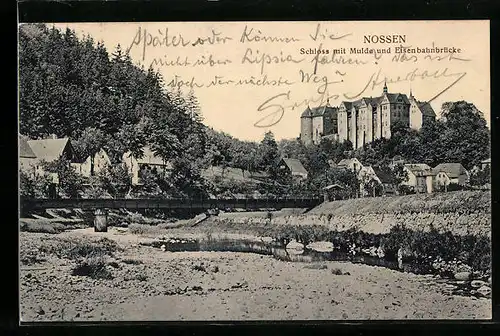 NOSSEN
Schloss mit Mulde und Eisenbahnbrücke
Später oder können Sie
nicht über Lipsia fahren? das ist
doch der nächste Weg?